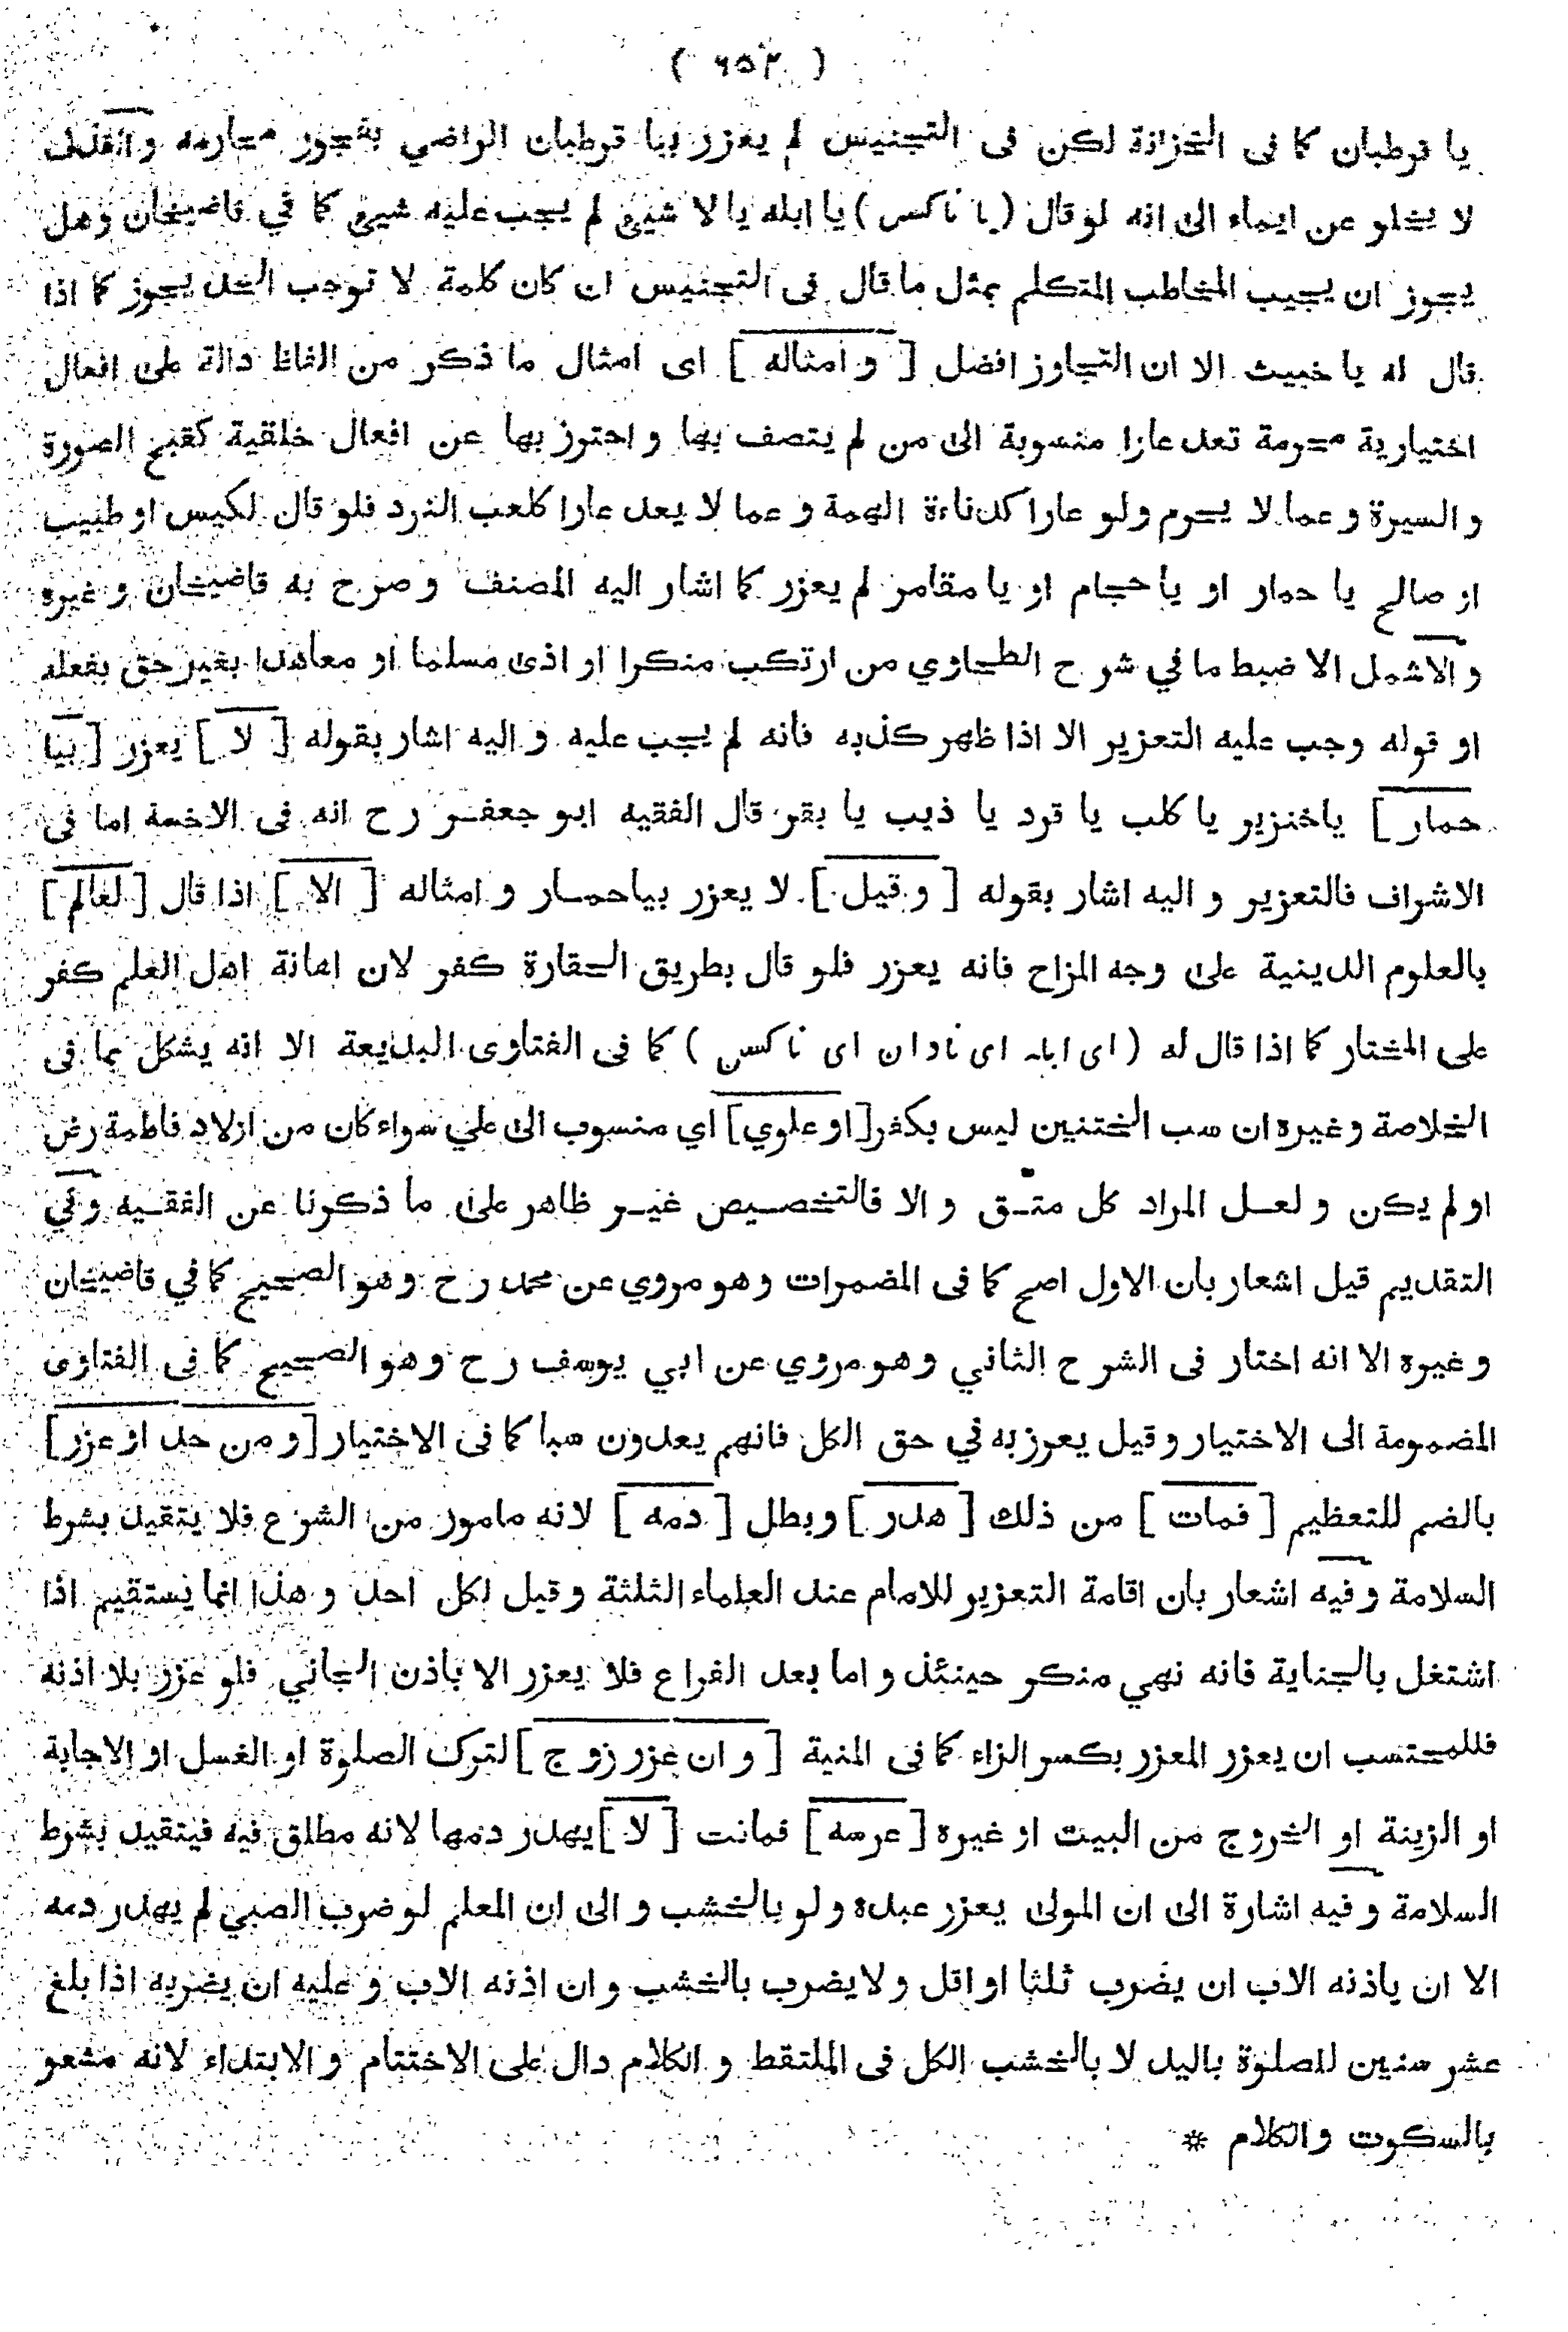 ( ٦٥٢ )
يا قرطبان كما فى الخزانة لكن فى التجنيس لم يعزر بيا قرطبان الراضي بفجور محارمه و القذف
لا يخلو عن ايماء الى انه لو قال (يا ناكس) يا ابله يا لا شيئ لم يجب عليه شيئ كما في قاضيخان وهل
يجوز ان يجيب المخاطب المتكلم بمثل ما قال فى التجنيس ان كان كلمة لا توجب الحد يجوز كما اذا
قال له يا خبيث الا ان التجاوز افضل [ و امثاله ] اى امثال ما ذكر من الفاظ دالة على افعال
اختيارية محرمة تعد عارا منسوبة الى من لم يتصف بها و احترز بها عن افعال خلقية كقبح الصورة
و السيرة و عما لا يحرم ولو عارا كدناءة الهمة و عما لا يعد عارا كلعب النرد فلو قال لكيس او طبيب
او صالح يا حمار او يا حجام او يا مقامر لم يعزر كما اشار اليه المصنف و صرح به قاضيخان و غيره
و الاشمل الاضبط ما في شرح الطحاوي من ارتكب منكرا او اذى مسلما او معاهدا بغير حق بفعله
او قوله وجب عليه التعزير الا اذا ظهر كذبه فانه لم يجب عليه و اليه اشار بقوله [ لا ] يعزر [ بيا
حمار ] يا خنزير يا كلب يا قرد يا ذيب يا بقر قال الفقيه ابو جعفر رح انه فى الاخسة اما فى
الاشراف فالتعزير و اليه اشار بقوله [ و قيل ] لا يعزر بيا حمار و امثاله [ الا ] اذا قال [ لعالم ]
بالعلوم الدينية على وجه المزاح فانه يعزر فلو قال بطريق الحقارة كفر لان اهانة اهل العلم كفر
على المختار كما اذا قال له ( اى ابله اى نادان اى ناكس ) كما فى الفتاوى البديعة الا انه يشكل بما فى
الخلاصة و غيره ان سب الختنين ليس بكفر [ او علوي ] اي منسوب الى علي سواء كان من اولاد فاطمة رض
او لم يكن و لعل المراد كل متق و الا فالتخصيص غير ظاهر على ما ذكرنا عن الفقيه و في
التقديم قيل اشعار بان الاول اصح كما فى المضمرات و هو مروي عن محمد رح و هو الصحيح كما في قاضيخان
و غيره الا انه اختار فى الشرح الثاني و هو مروي عن ابي يوسف رح و هو الصحيح كما فى الفتاوى
المضمومة الى الاختيار و قيل يعزر به في حق الكل فانهم يعدون سبا كما فى الاختيار [ و من حد او عزر ]
بالضم للتعظيم [ فمات ] من ذلك [ هدر ] و بطل [ دمه ] لانه مامور من الشرع فلا يتقيد بشرط
السلامة و فيه اشعار بان اقامة التعزير للامام عند العلماء الثلثة و قيل لكل احد و هذا انما يستقيم اذا
اشتغل بالجناية فانه نهي منكر حينئذ و اما بعد الفراغ فلا يعزر الا باذن الجاني فلو عزر بلا اذنه
فللمحتسب ان يعزر المعزر بكسر الزاء كما فى المنية [ و ان عزر زوج ] لترك الصلوة او الغسل او الاجابة
او الزينة او الخروج من البيت او غيره [ عرسه ] فماتت [ لا ] يهدر دمها لانه مطلق فيه فيتقيد بشرط
السلامة و فيه اشارة الى ان المولى يعزر عبده ولو بالخشب و الى ان المعلم لو ضرب الصبي لم يهدر دمه
الا ان ياذنه الاب ان يضرب ثلثا او اقل ولا يضرب بالخشب و ان اذنه الاب و عليه ان يضربه اذا بلغ
عشر سنين للصلوة باليد لا بالخشب الكل فى الملتقط و الكلام دال على الاختتام و الابتداء لانه مشعر
بالسكوت و الكلام *